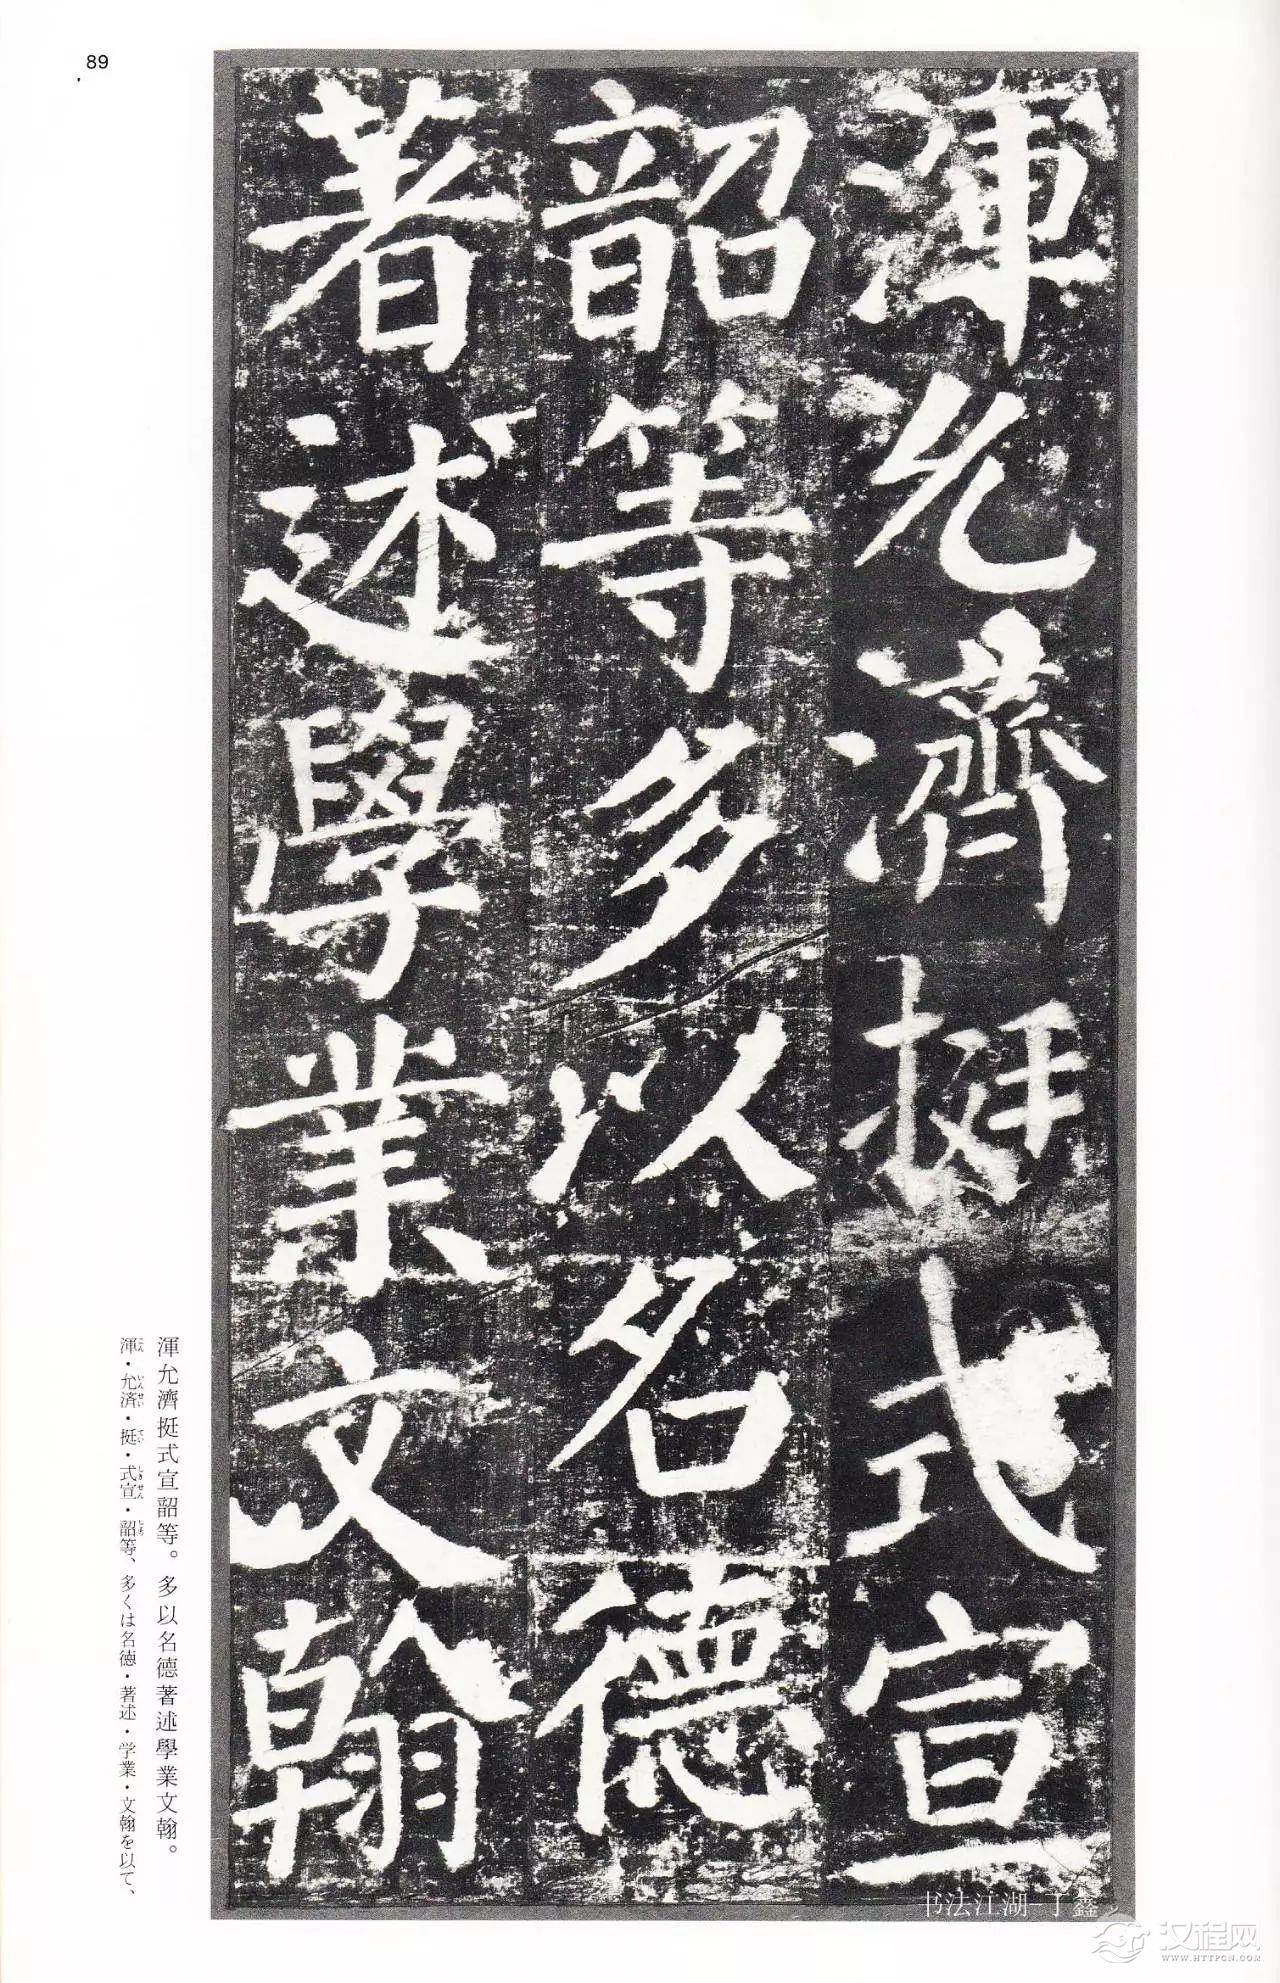 89
渾允濟挺式宣
韶等多以名德
著述學業文翰
渾允濟挺式宣韶等。多以名德著述學業文翰。
渾・允済・挺・式宣・韶等、多くは名德・著述・学業・文翰を以て、
书法江湖-丁鑫
汉程网
WWW.HTTPCN.COM